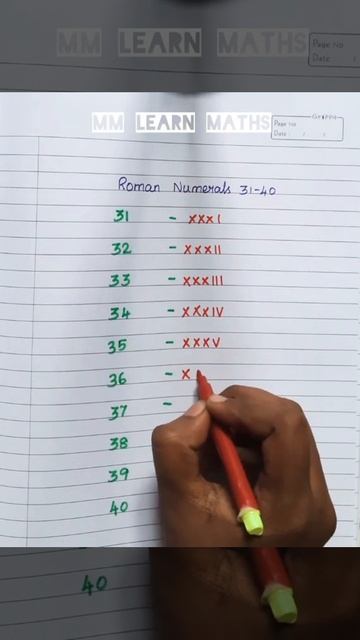 MM LEARN MATHS
Page No
Date / /
MM LEARN MATHS
Page No
Date : / /
Roman Numerals 31-40
31 - XXXI
32 - XXXII
33 - XXXIII
34 - XXXIV
35 - XXXV
36 - X
37 -
38
39
40
40